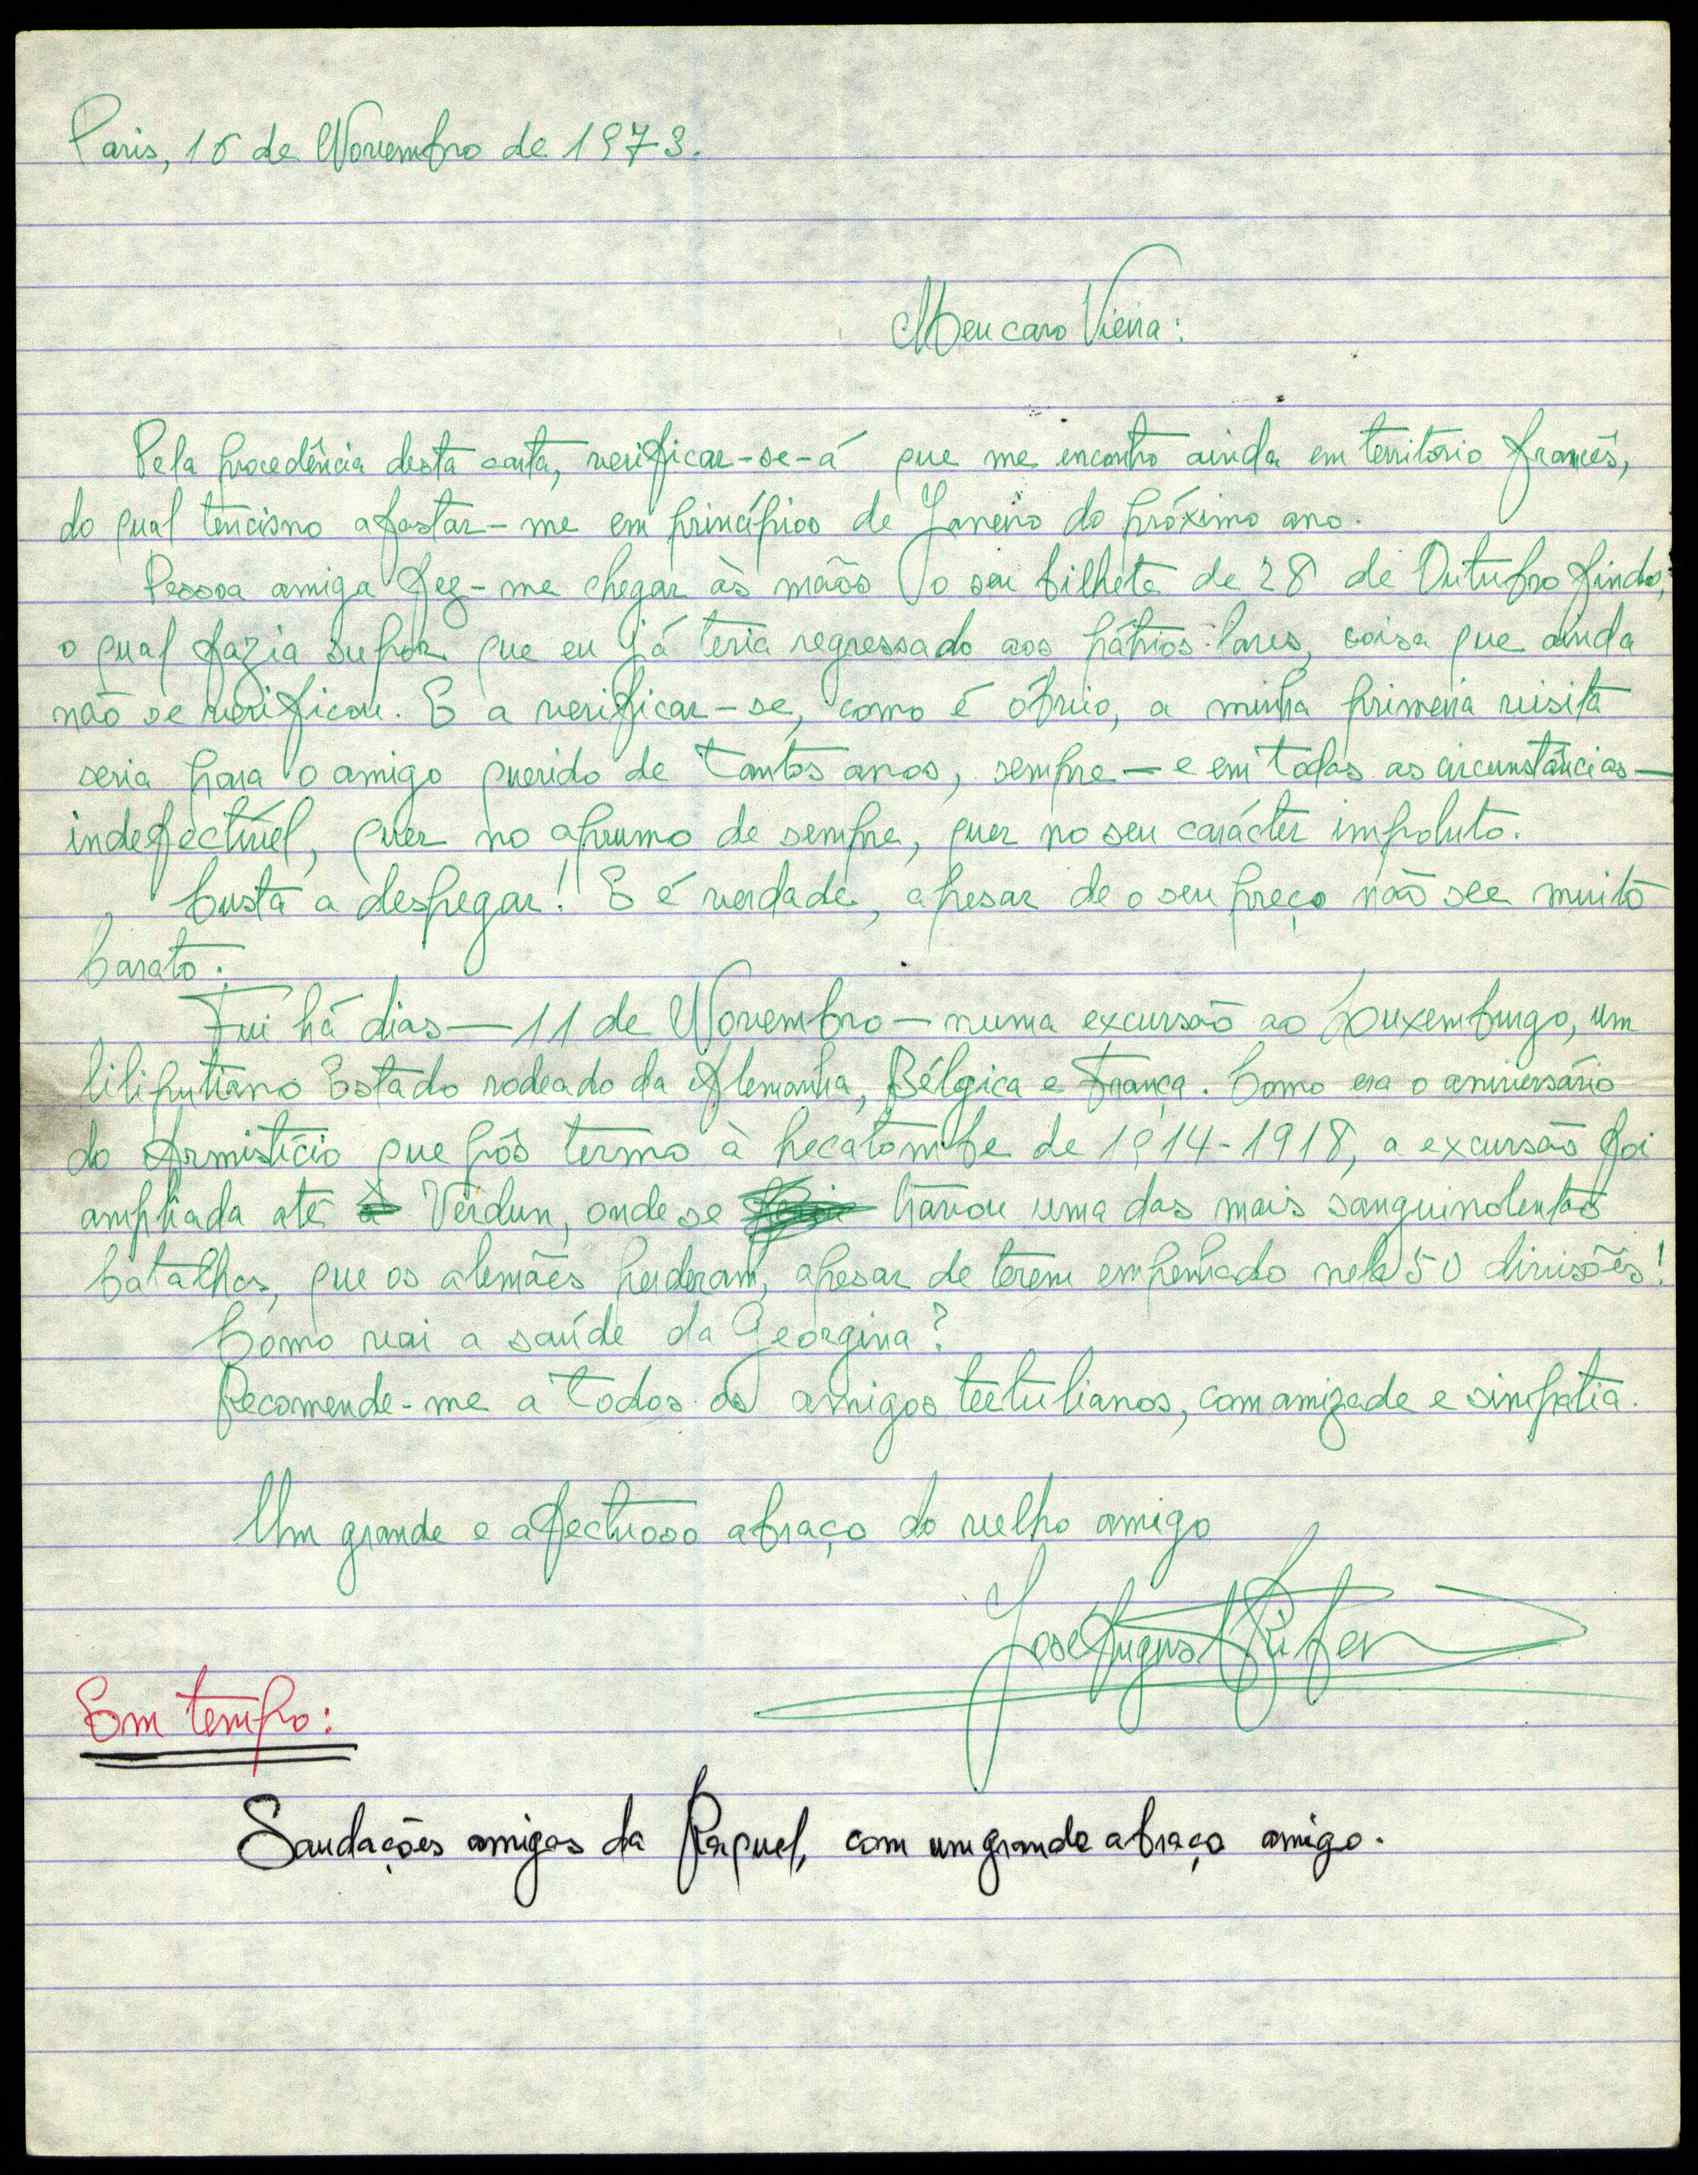 Paris, 16 de Novembro de 1973.
Meu caro Vieira:
Pela procedência desta carta, verificar-se-á que me encontro ainda em território francês,
do qual tenciono afastar-me em princípios de Janeiro do próximo ano.
Pessoa amiga fez-me chegar às mãos o seu bilhete de 28 de Outubro findo,
o qual fazia supor que eu já teria regressado aos pátrios lares, coisa que ainda
não se verificou. E a verificar-se, como é óbvio, a minha primeira visita
seria para o amigo querido de tantos anos, sempre — e em todas as circunstâncias —
indefectível, quer no aprumo de sempre, quer no seu carácter impoluto.
Custa a despegar! E é verdade, apesar de o seu preço não ser muito
barato.
Fui há dias — 11 de Novembro — numa excursão ao Louxemburgo, um
liliputiano Estado rodeado da Alemanha, Bélgica e França. Como era o aniversário
do Armistício que pôs termo à hecatombe de 1914-1918, a excursão foi
ampliada até a Verdun, onde se travou uma das mais sanguinolentas
batalhas, que os alemães perderam, apesar de terem empenhado nela 50 divisões!
Como vai a saúde da Georgina?
Recomende-me a todos os amigos tertulianos, com amizade e simpatia.
Um grande e afectuoso abraço do velho amigo
José Augusto
Em tempo:
Saudações amigas da Raquel, com um grande abraço amigo.